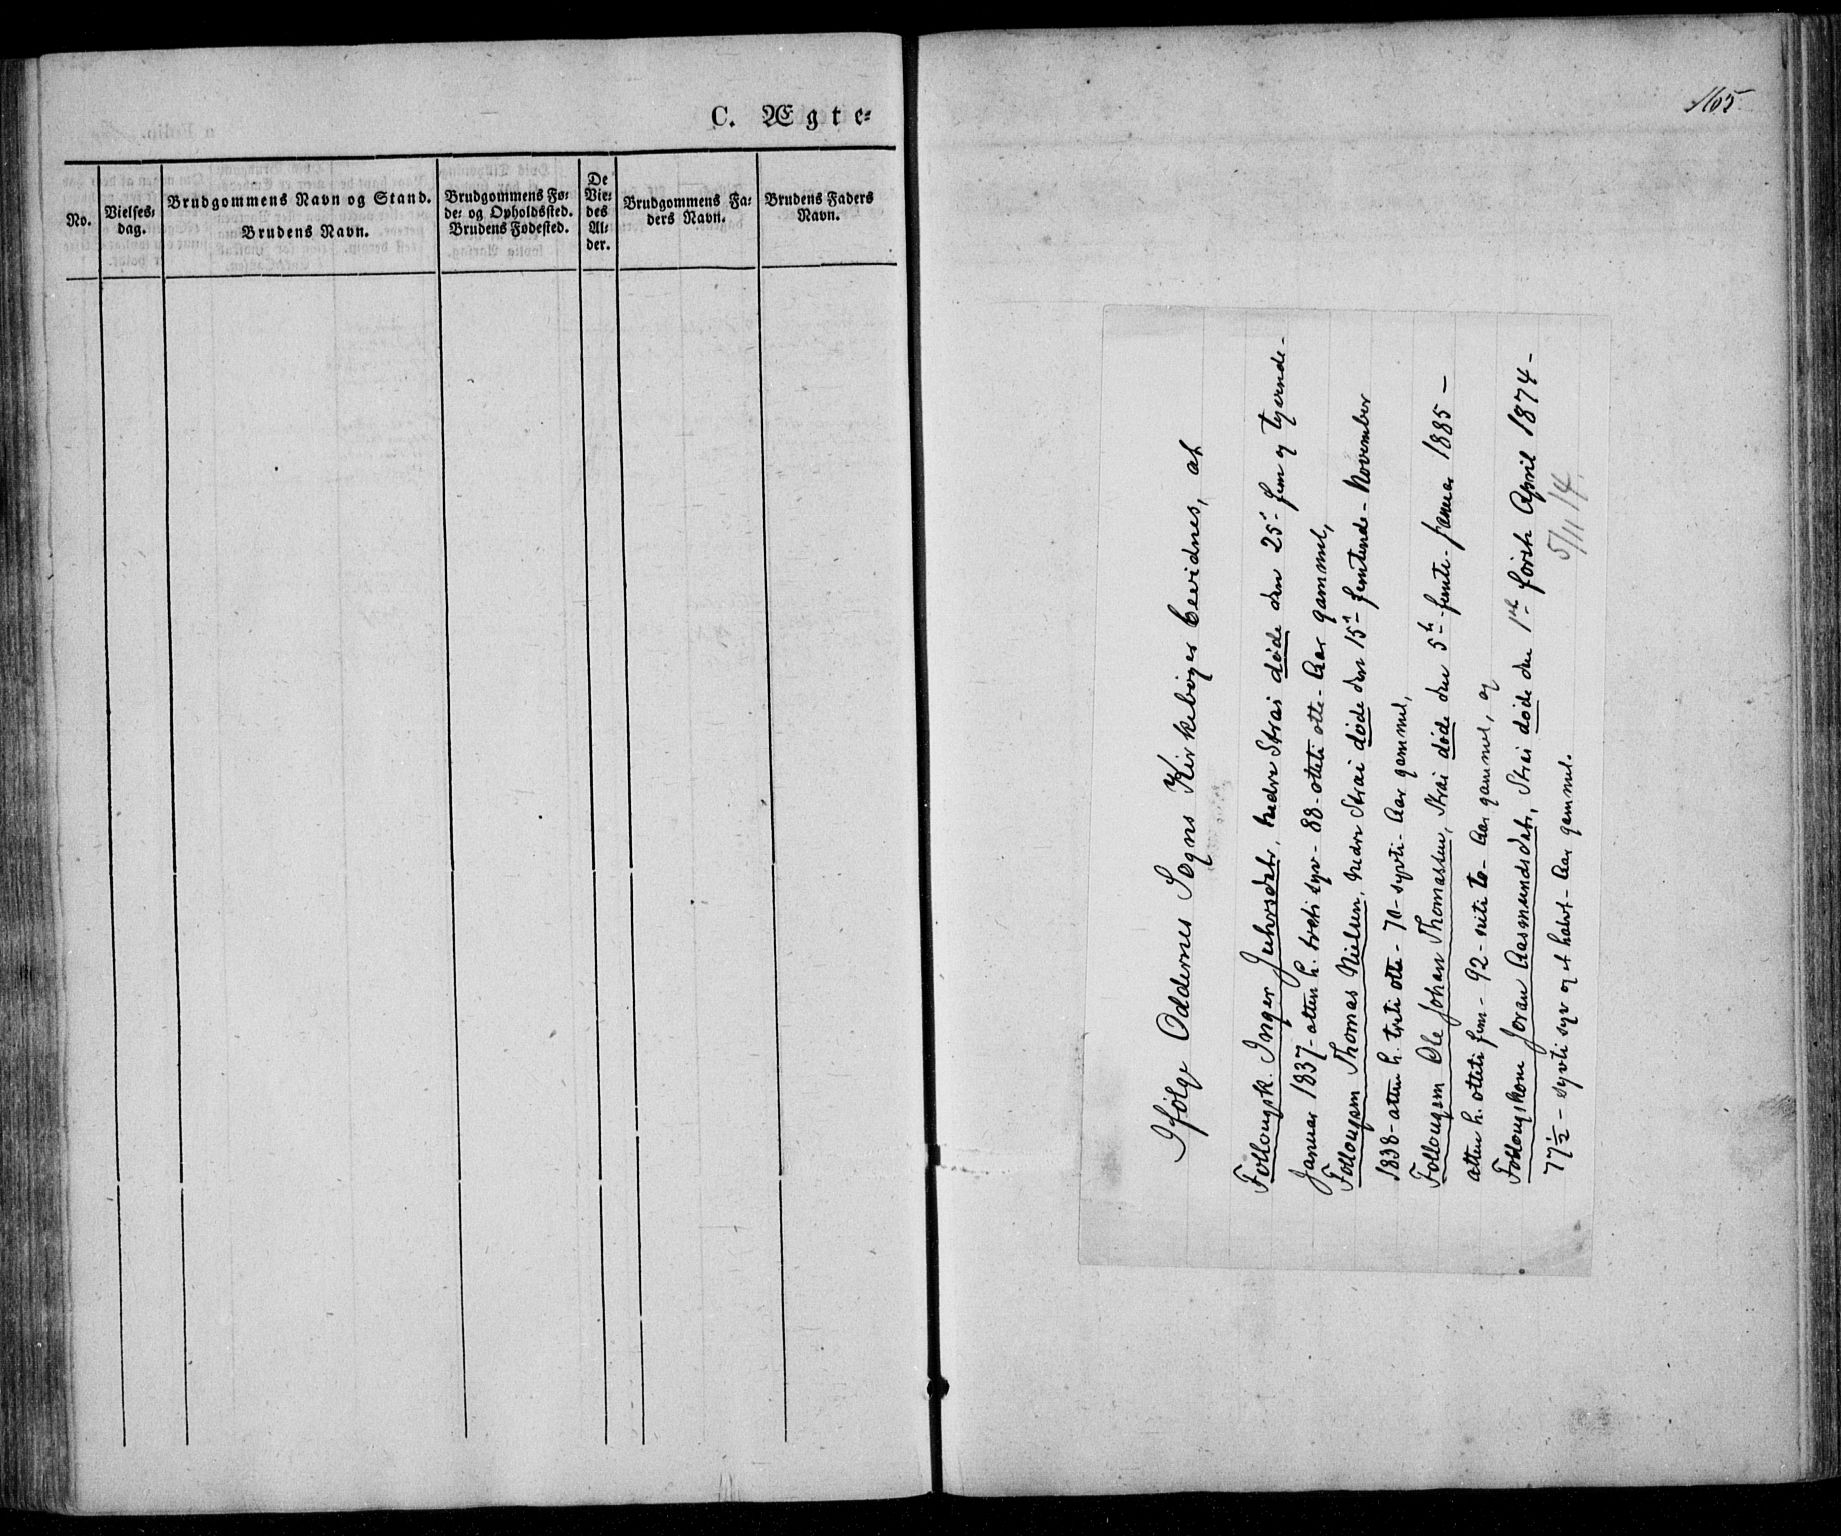 C. Ægte-
No.
Vielses-
dag.
Brudgommens Navn og Stand.
Brudens Navn.
Brudgommens Fø-
de- og Opholdssted.
Brudens Fødested.
De
Vie-
des
Al-
der.
Brudgommens Fa-
ders Navn.
Brudens Faders
Navn.
165
Ifølge Oddernes Sogns Kirkebøger bevidnes, at
Follougsk. Inger Jehrsdatr, nedre Strai døde den 25 - fem og tyvende -
Januar 1837 - atten h. treti syv - 88 - otteti otte - Aar gammel,
Follougsm Thomas Nielsen, nedre Strai døde den 15 - femtende - November
1838 - atten h. treti otte - 70 - sytti - Aar gammel,
Follougsm Ole Johan Thomassen, Strai døde den 5te - femte - Januar 1885 -
atten h. otteti fem - 92 - niti to - Aar gammel, og
Follougskone Joran Aasmundsdatr, Strai døde den 1ste første April 1874 -
77 1/2 - sytti syv og et halvt - Aar gammel.
5/11 14.